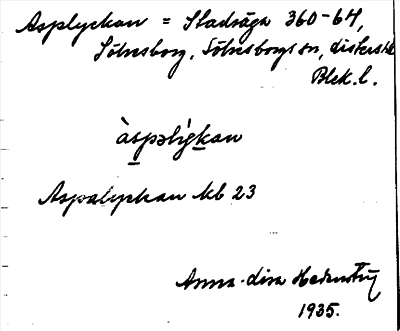 Asplyckan = Stadsäga 360-64,
Sölvesborg, Sölvesborgs sn, Listers hd
Blek. l.
àspəlýkan
Aspalyckan kb 23
Anna-Lisa
1935.